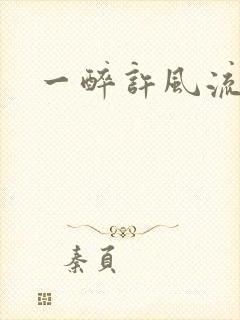 一醉許風流
秦頁